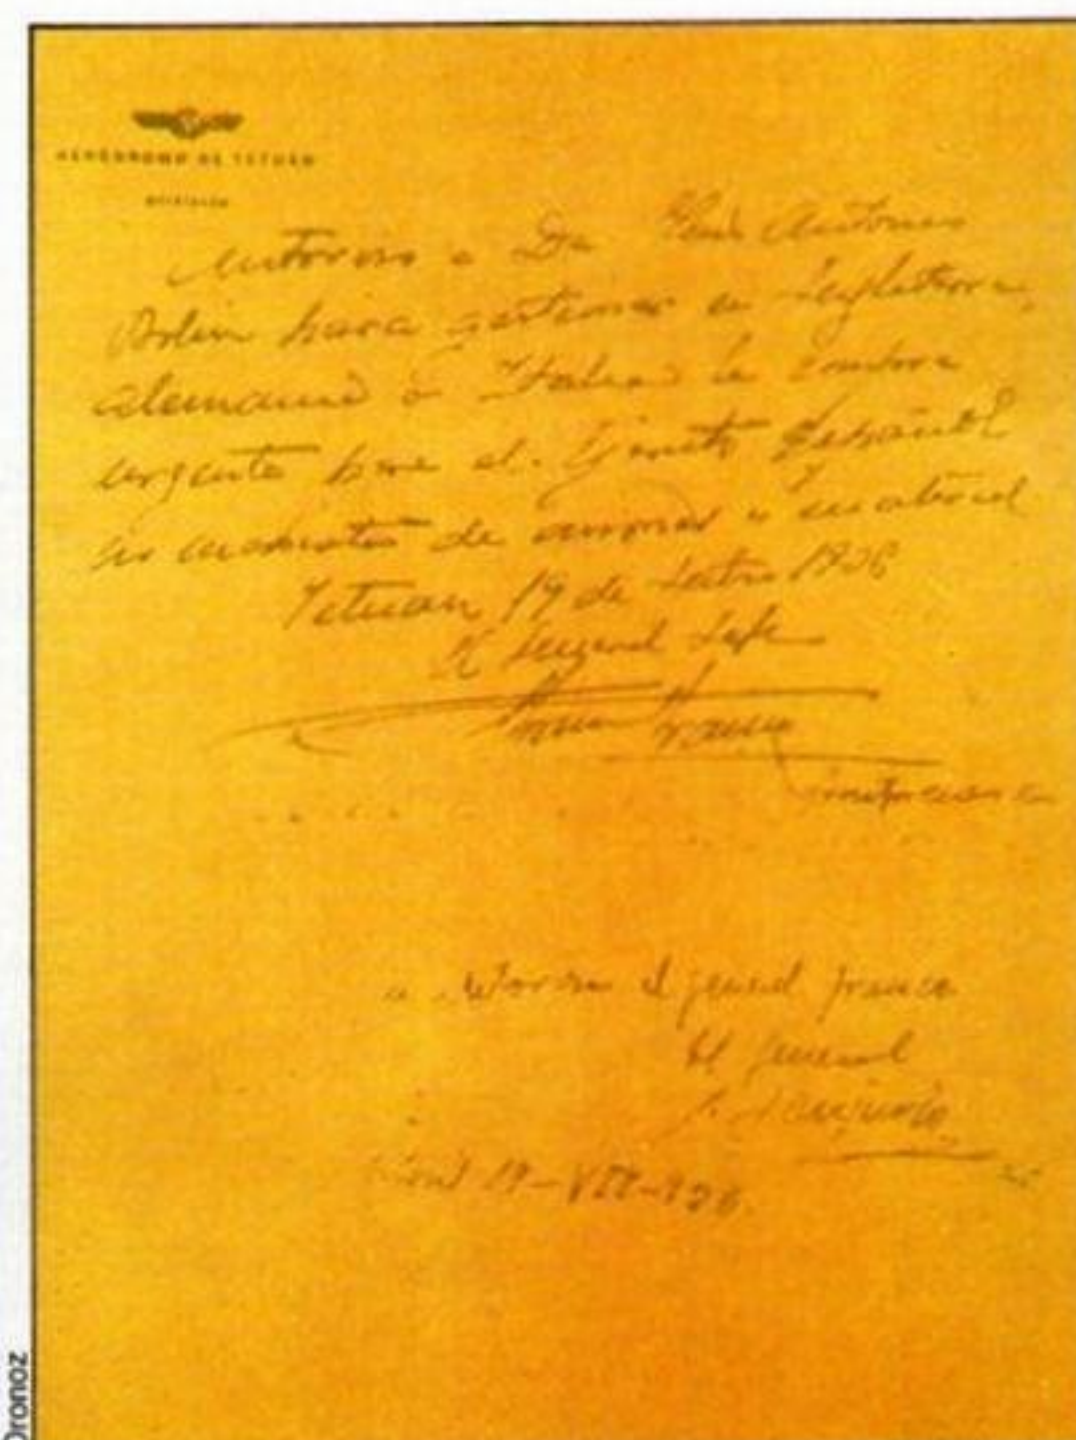 AERÓDROMO DE TETUÁN
Autorizo a Dn Luis Antonio
Bolin para gestionar en Inglaterra,
Alemania o Italia la compra
urgente para el Ejército Español
no de aviones y material
Tetuan 19 de Julio 1936
El General Jefe
Franco
autorizo el general Franco
El general
J. Sanjurjo
19-VII-936
Oronoz